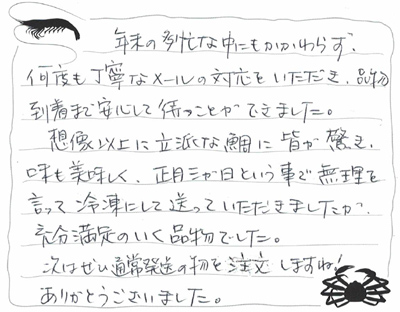 年末の多忙な中にもかかわらず、
何度も丁寧なメールの対応をいただき、品物
到着まで安心して待つことができました。
想像以上に立派な鯛に皆が驚き、
味も美味しく、正月三が日という事で無理を
言って冷凍にして送っていただきましたが、
充分満足のいく品物でした。
次はぜひ通常発送の物を注文しますね!
ありがとうございました。